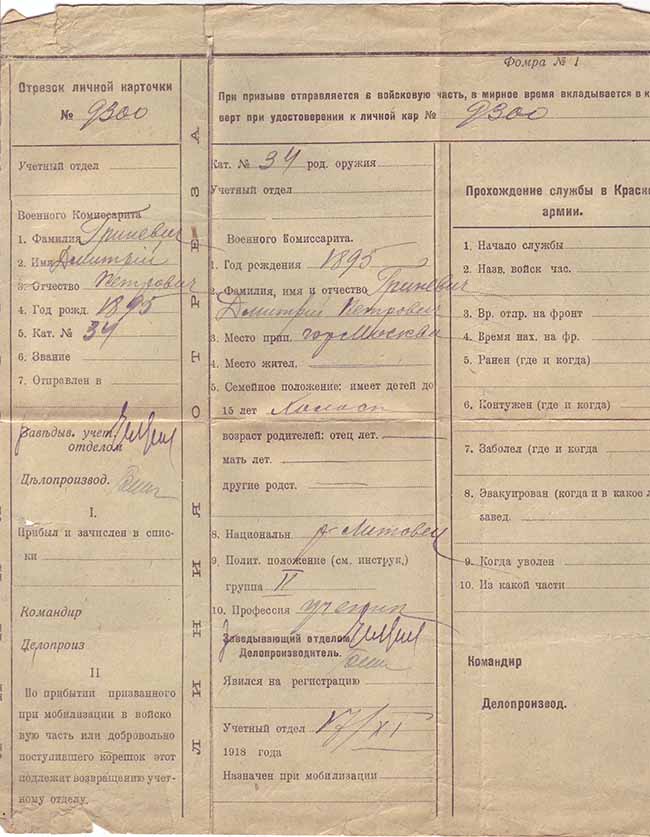 Отрезок личной карточки
№ 9300
Учетный отдел
Военного Комиссарита
1. Фамилия Гриневич
2. Имя Дмитрий
3. Отчество Петрович
4. Год рожд. 1895
5. Кат. № 34
6. Звание
7. Отправлен в
Завѣдыв. учет.
отделом
Цѣлопроизвод.
I.
Прибыл и зачислен в спис-
ки
Командир
Целопроиз
II
По прибытии призванного
при мобилизации в войско
вую часть или добровольно
поступившего корешок этот
подлежит возвращению учет-
ному отделу.
ЛИНИЯ ОТРЕЗА
Фомра № 1
При призыве отправляется в войсковую часть, в мирное время вкладывается в к
верт при удостоверении к личной кар № 9300
Кат. № 34 род. оружия
Учетный отдел
Военного Комиссарита.
1. Год рождения 1895
2. Фамилия, имя и отчество Гриневич
Дмитрий Петрович
3. Место прип. гор Москва
4. Место жител.
5. Семейное положение: имеет детей до
15 лет Холост
возраст родителей: отец лет.
мать лет.
другие родст.
8. Национальн Литовец
9. Полит. положение (см. инструк.)
группа II
10. Профессия ученик
Заведывающий отделом
Делопроизводитель.
Явился на регистрацию
Учетный отдел 17/XI
1918 года
Назначен при мобилизации
Прохождение службы в Красн
армии.
1. Начало службы
2. Назв. войск час.
3. Вр. отпр. на фронт
4. Время нах. на фр.
5. Ранен (где и когда)
6. Контужен (где и когда)
7. Заболел (где и когда
8. Эвакуирован (когда и в какое л
завед.
9. Когда уволен
10. Из какой части
Командир
Делопроизвод.